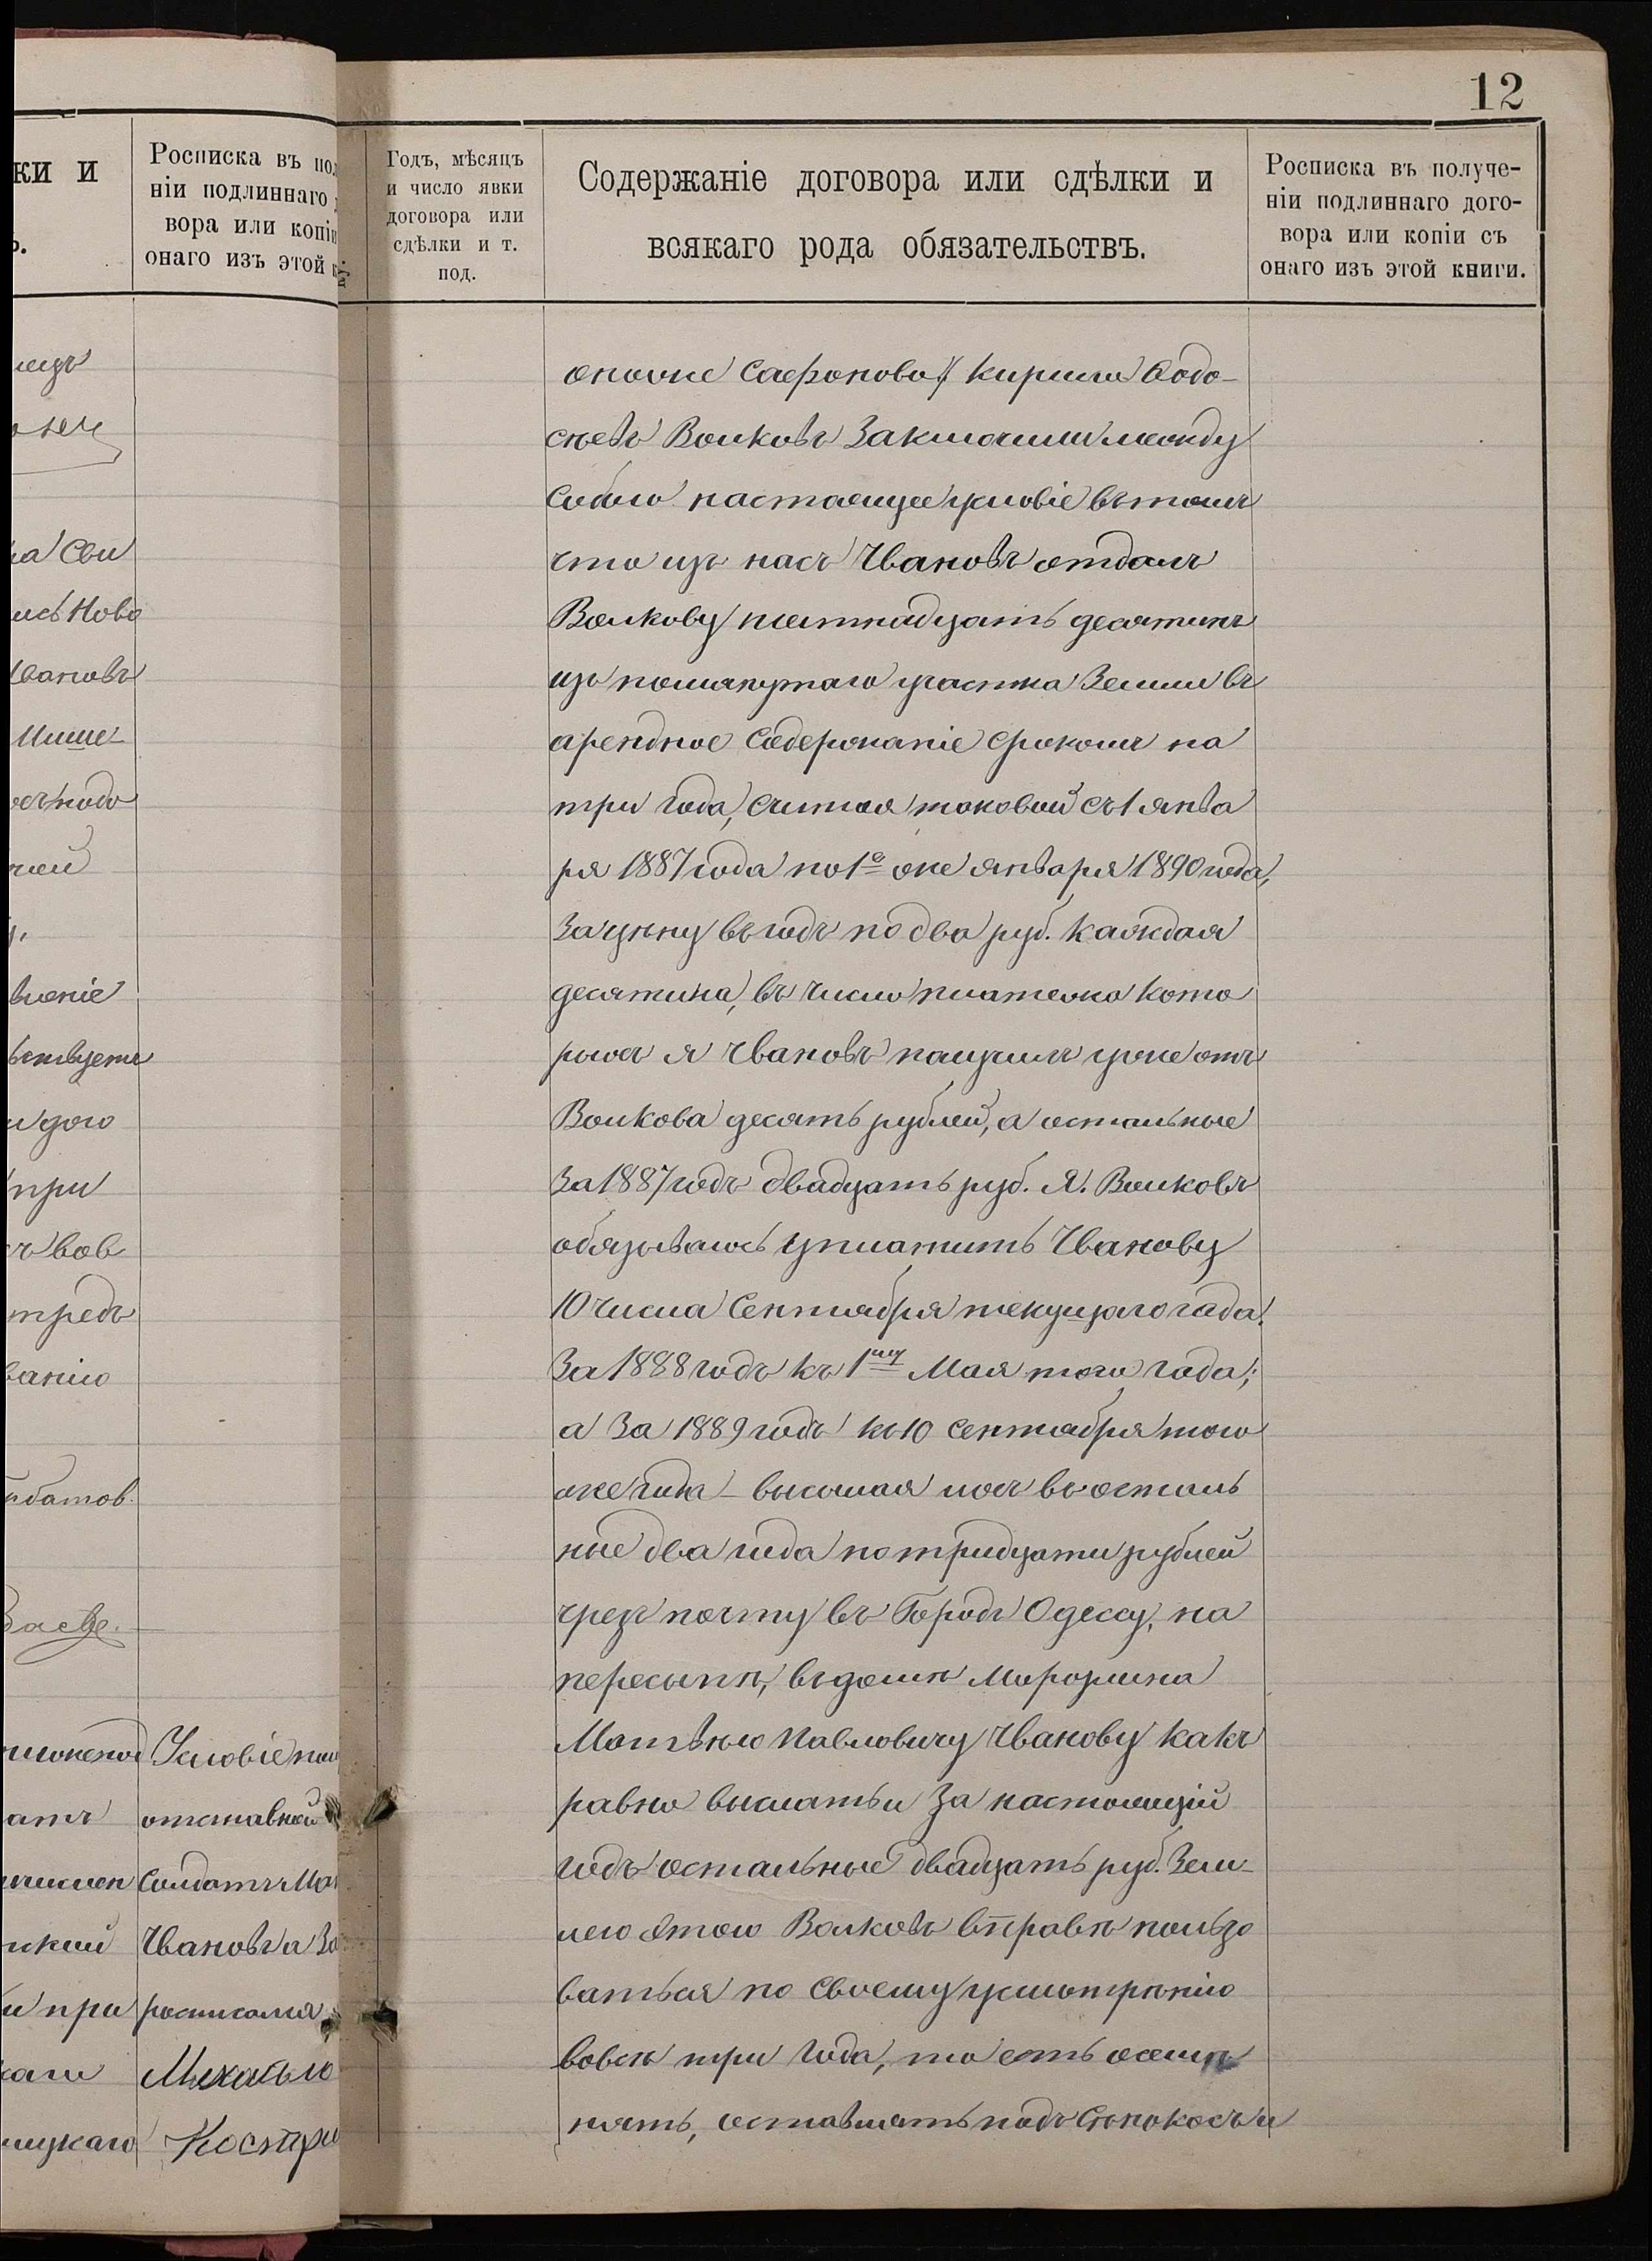 12
ки и
Росписка въ пол
ніи подлиннаго
вора или копіи
онаго изъ этой
Годъ, мѣсяцъ
и число явки
договора или
сдѣлки и т.
под.
Содержаніе договора или сдѣлки и
всякаго рода обязательствъ.
Росписка въ получе-
ніи подлиннаго дого-
вора или копіи съ
онаго изъ этой книги.
ка Сви
ись Ново
Ивановъ
Мише-
вленіе
ьствуетъ
и дого
при
ъ вов
тредъ
ванію
Условіе
отставной
Солдатъ Ма
Ивановъ а За
росписался
Михайло
Костри
Сафоново Кирила Ѳодо-
сѣевъ Волковъ Заключили между
собою настоящее условіе въ томъ
что изъ насъ Ивановъ отдалъ
Волкову пятнадцать десятинъ
изъ помянутаго участка Земли въ
арендное Содержаніе срокомъ на
три года, Считая таковой съ 1 янва
ря 1887 года по 1е же января 1890 года,
За цѣну въ годъ по два руб. Каждая
десятина, въ число платежа кото
рыхъ я Ивановъ получилъ уже отъ
Волкова десять рублей, а остальные
За 1887 годъ двадцать руб. Я. Волковъ
обязываюсь уплатить Иванову
10 числа Сентября текущаго года.
За 1888 годъ къ 1му Мая того года;
а За 1889 годъ къ 10 Сентября того
же года высылая ихъ въ осталь
ные два года по тридцати рублей
чрезъ почту въ Городъ Одессу, на
пересыпь, въ домъ
Матвѣю Павловичу Иванову какъ
равно выслать и За настоящій
годъ остальные двадцать руб. Зем-
лею этою Волковъ вправѣ пользо
ваться по Своему усмотрѣнію
вовсѣ три Года, то есть
пять, оставлять подъ Сѣнокосъ и